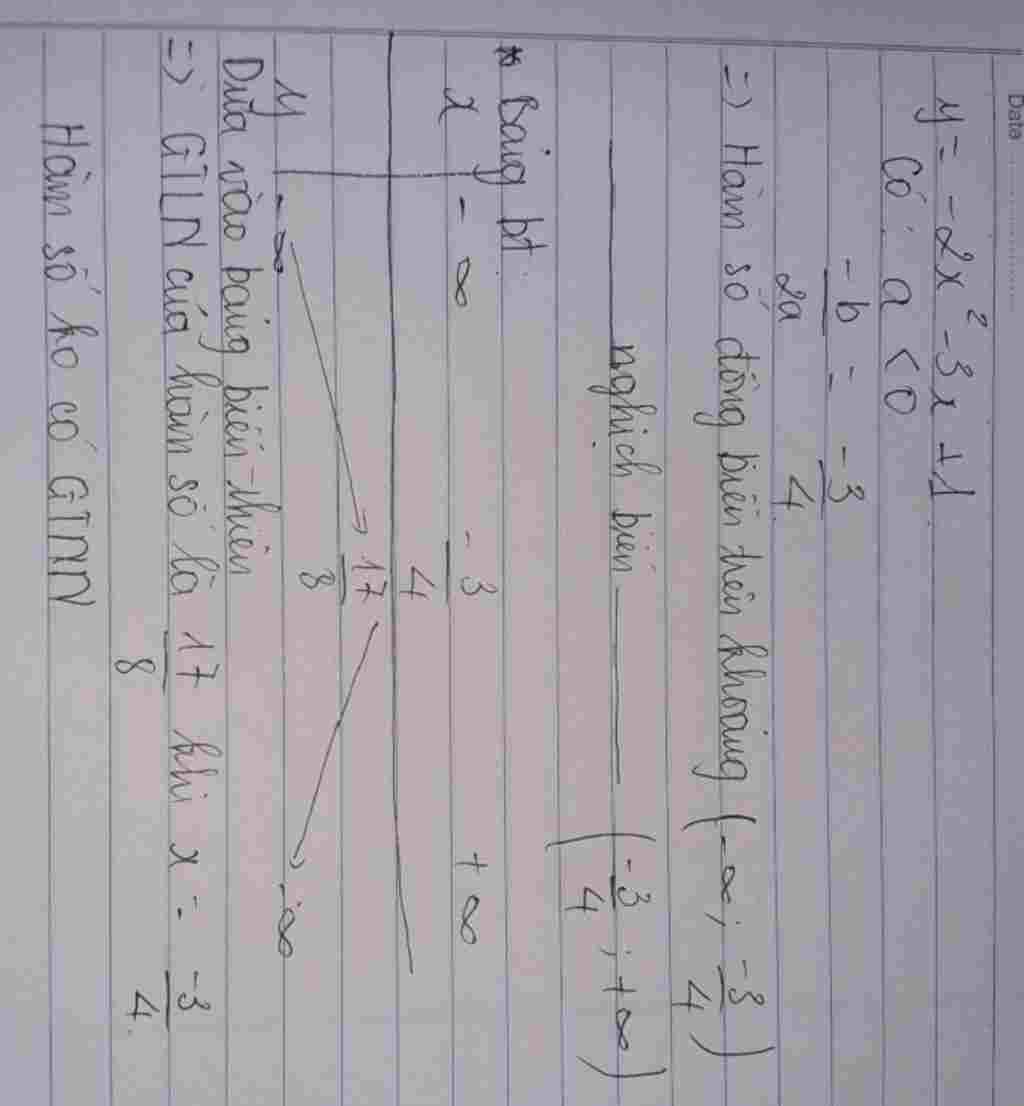 Date
y = -2x² - 3x + 1
Có: a < 0
-b/2a = -3/4
=) Hàm số đồng biến trên khoảng (-∞; -3/4)
nghịch biến (-3/4; +∞)
* Bảng bt:
x -∞ -3/4 +∞
y -∞ 17/8 -∞
Dựa vào bảng biến thiên
=) GTLN của hàm số là 17/8 khi x = -3/4
Hàm số ko có GTNN